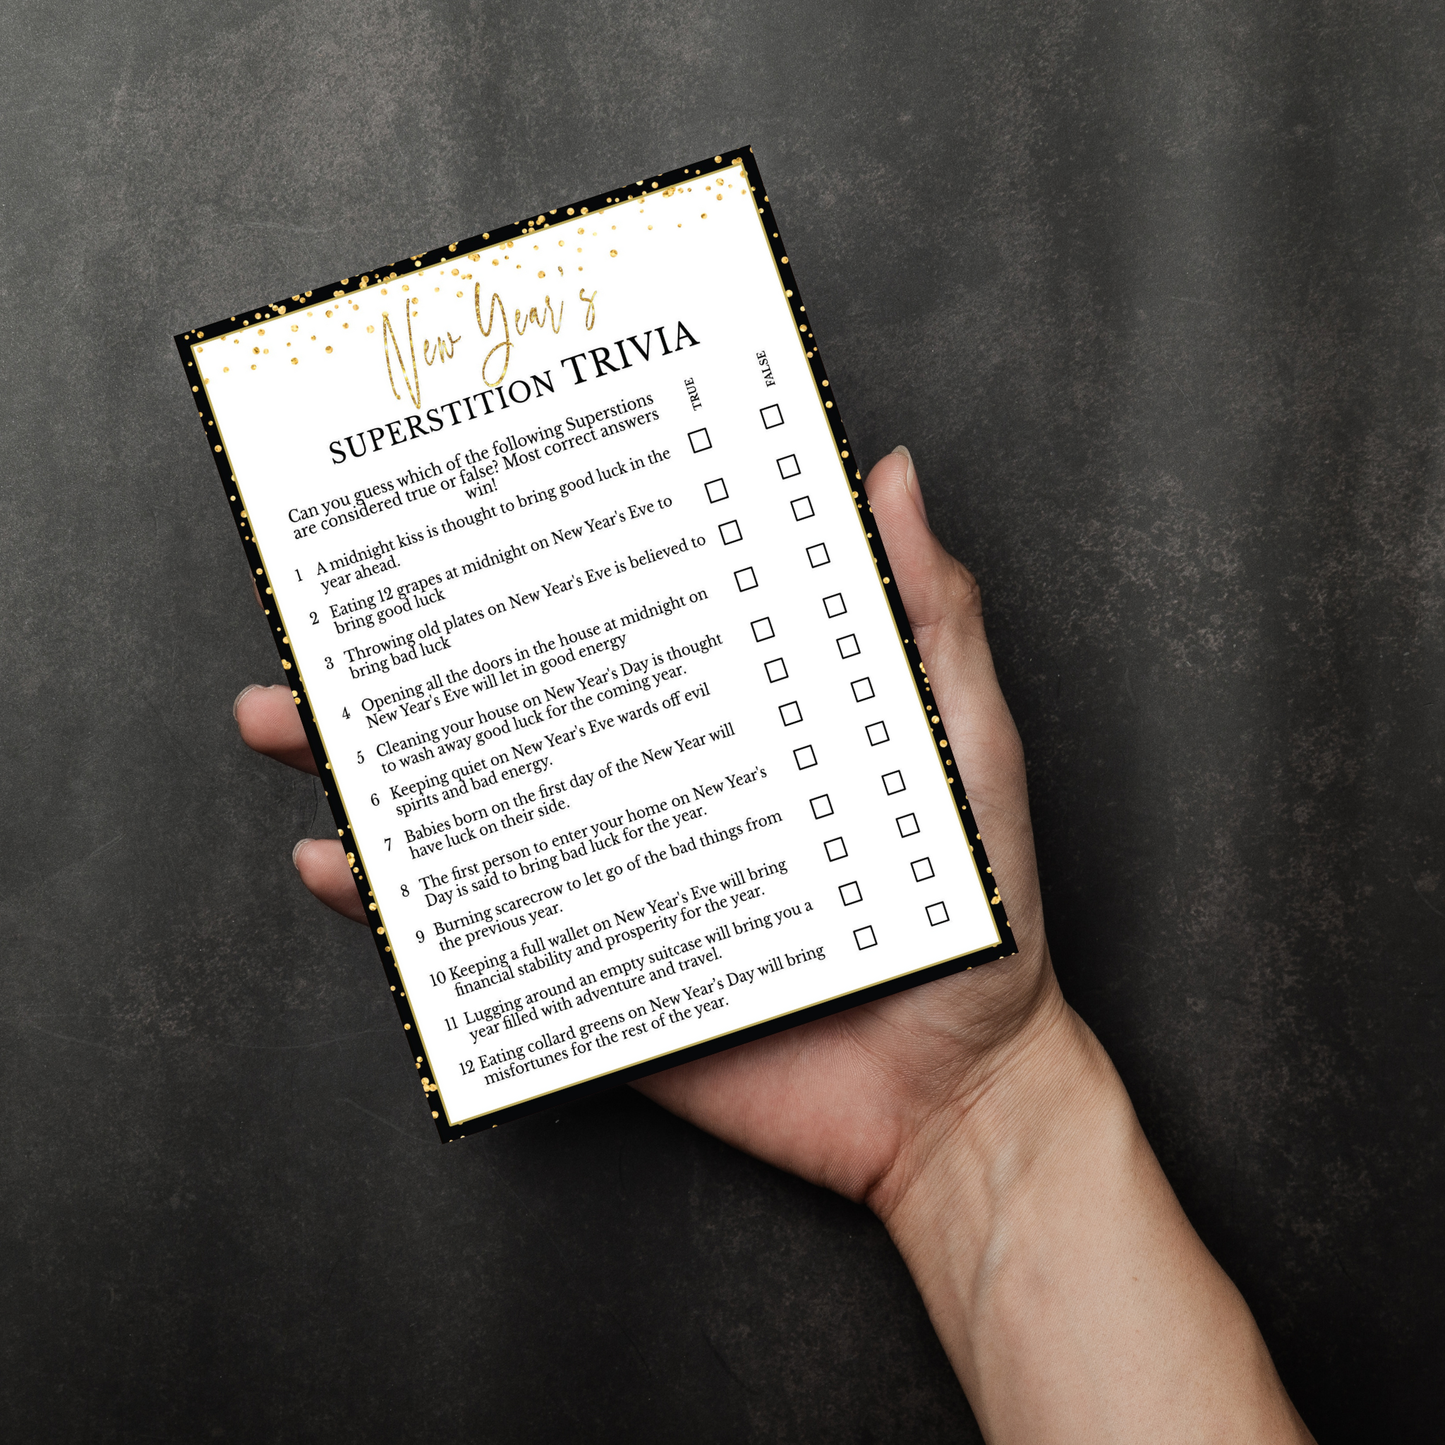 New Year's
SUPERSTITION TRIVIA
Can you guess which of the following Superstions
are considered true or false? Most correct answers
win!
TRUE
FALSE
1 A midnight kiss is thought to bring good luck in the
year ahead.
2 Eating 12 grapes at midnight on New Year's Eve to
bring good luck
3 Throwing old plates on New Year's Eve is believed to
bring bad luck
4 Opening all the doors in the house at midnight on
New Year's Eve will let in good energy
5 Cleaning your house on New Year's Day is thought
to wash away good luck for the coming year.
6 Keeping quiet on New Year's Eve wards off evil
spirits and bad energy.
7 Babies born on the first day of the New Year will
have luck on their side.
8 The first person to enter your home on New Year's
Day is said to bring bad luck for the year.
9 Burning scarecrow to let go of the bad things from
the previous year.
10 Keeping a full wallet on New Year's Eve will bring
financial stability and prosperity for the year.
11 Lugging around an empty suitcase will bring you a
year filled with adventure and travel.
12 Eating collard greens on New Year's Day will bring
misfortunes for the rest of the year.